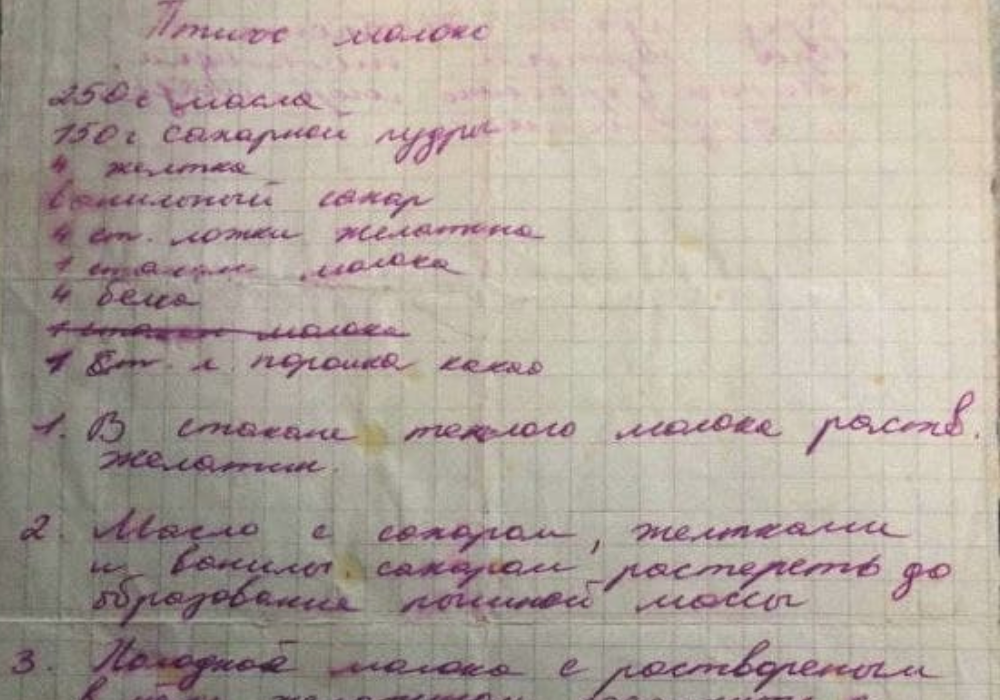 Птичье молоко
250 г масла
150 г сахарной пудры
4 желтка
ванильный сахар
4 ст. ложки желатина
1 стакан молока
4 белка
1 стакан молока
1 ст. л. порошка какао
1. В стакане теплого молока раств.
желатин.
2. Масло с сахаром, желтками
и ваниль. сахаром растереть до
образования пышной массы
3. Холодной молоко с раствореным
в нём желатином